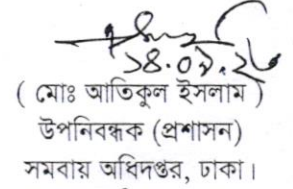 ১৪.০৯.২৬
( মোঃ আতিকুল ইসলাম )
উপনিবন্ধক (প্রশাসন)
সমবায় অধিদপ্তর, ঢাকা।